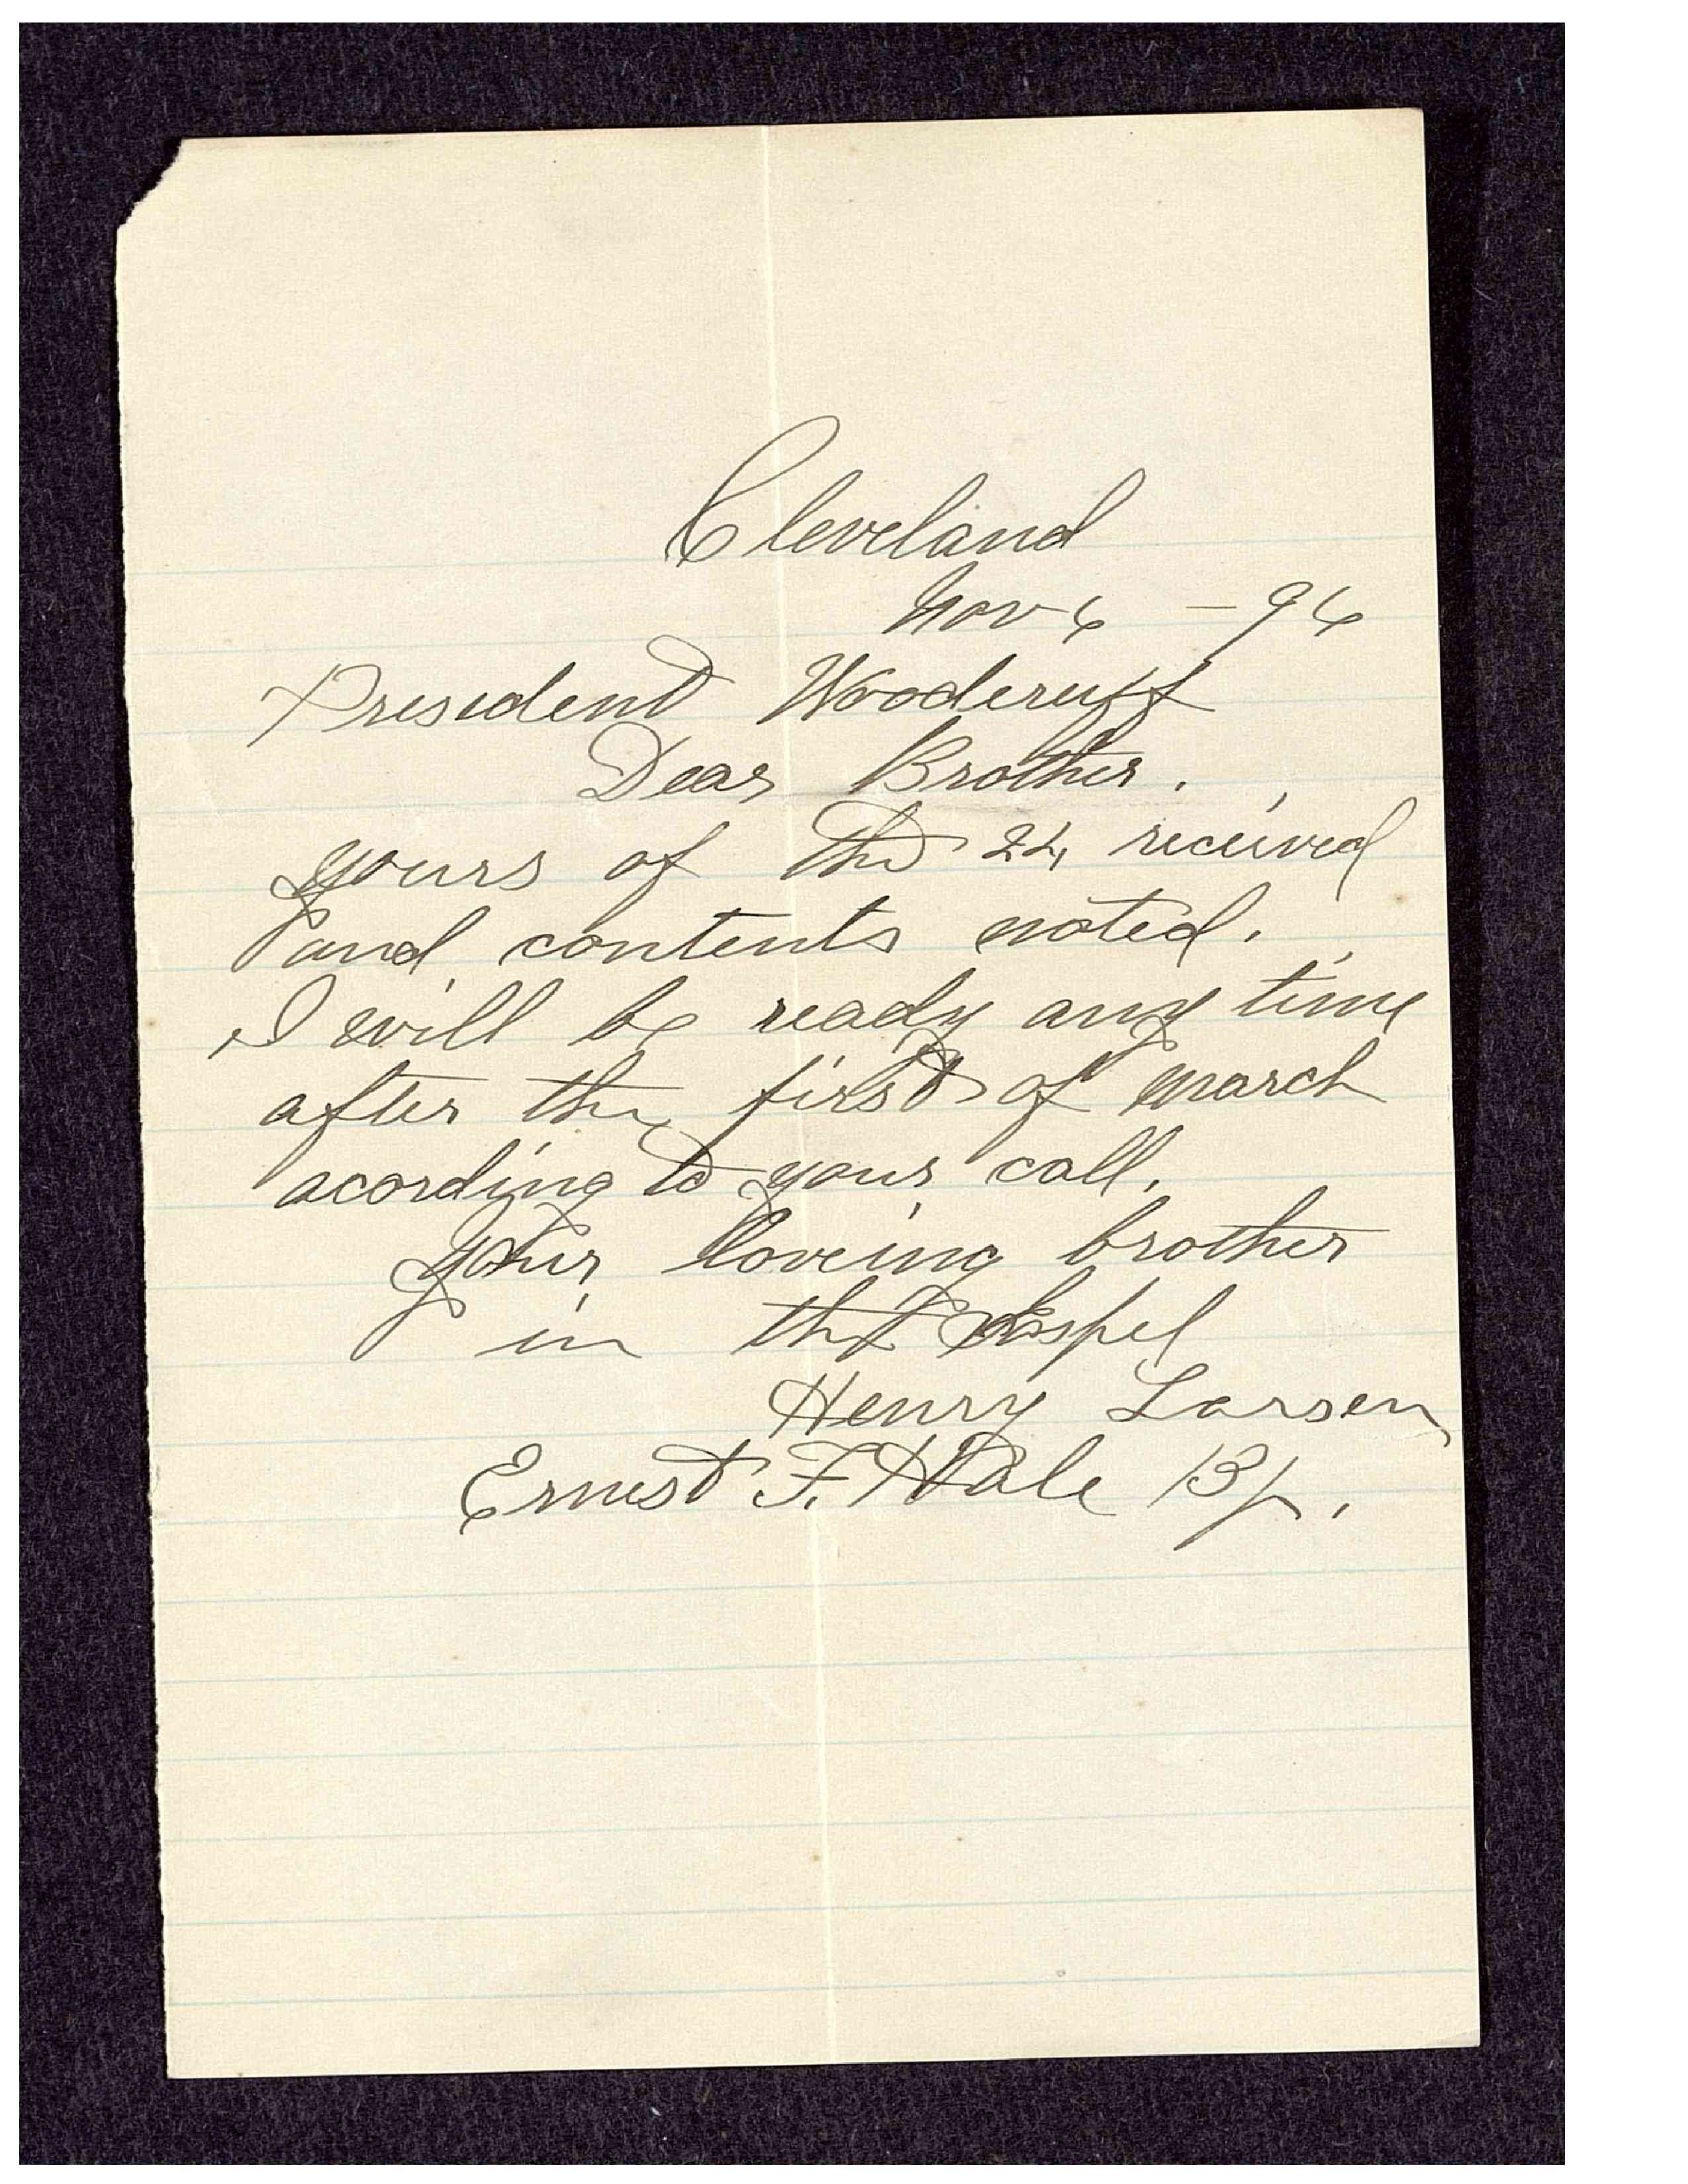 Cleveland
Nov 6 – 96
President Wooderuff
Dear Brother.
yours of the 24 received
and contents noted.
I will be ready any time
after the first of march
acording to your call.
your loveing brother
in the Gospel
Henry Larsen
Ernest F. Hale Bp.